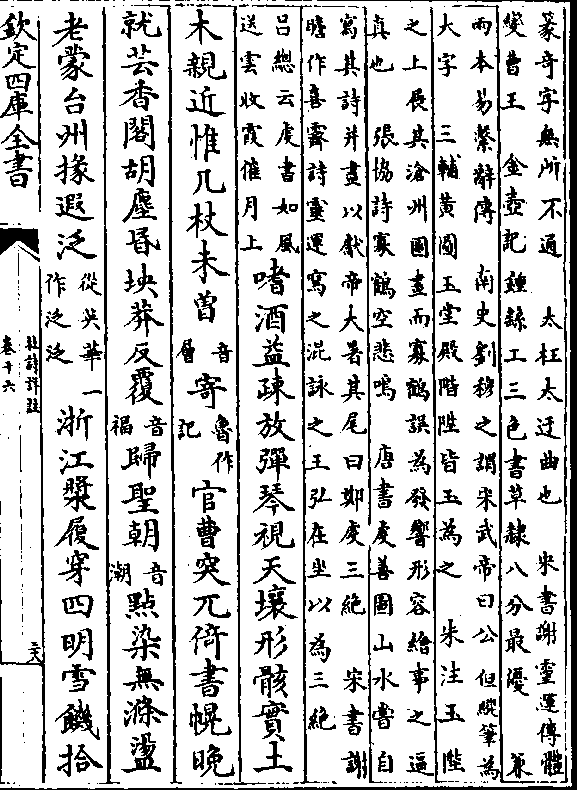 篆奇字無所不通　太枉太迂曲也　宋書謝靈運傳體
變曹王　金壺記鍾繇工三色書草隸八分最優　兼
兩本易繫辭傳　南史劉穆之謂宋武帝曰公但縱筆為
大字　三輔黃圖玉堂殿階陛皆玉為之　朱注玉陛
之上展其滄州圖畫而寡鶴誤為發響形容繪事之逼
真也　張協詩寡鶴空悲鳴　唐書虔善圖山水嘗自
寫其詩并畫以獻帝大署其尾曰鄭虔三絶　宋書謝
瞻作喜霽詩靈運寫之混詠之王弘在坐以為三絶
呂總云虔書如風
送雲收霞催月上
嗜酒益疎放彈琴視天壤形骸實土
木親近惟几杖未曾音層寄魯作記官曹突兀倚書幌晚
就芸香閣胡塵昏坱莽反覆音福歸聖朝音潮點染無滌盪
老蒙台州掾遐泛從英華一作泛泛浙江槳履穿四明雪饑拾
欽定四庫全書
杜詩詳註
卷十六